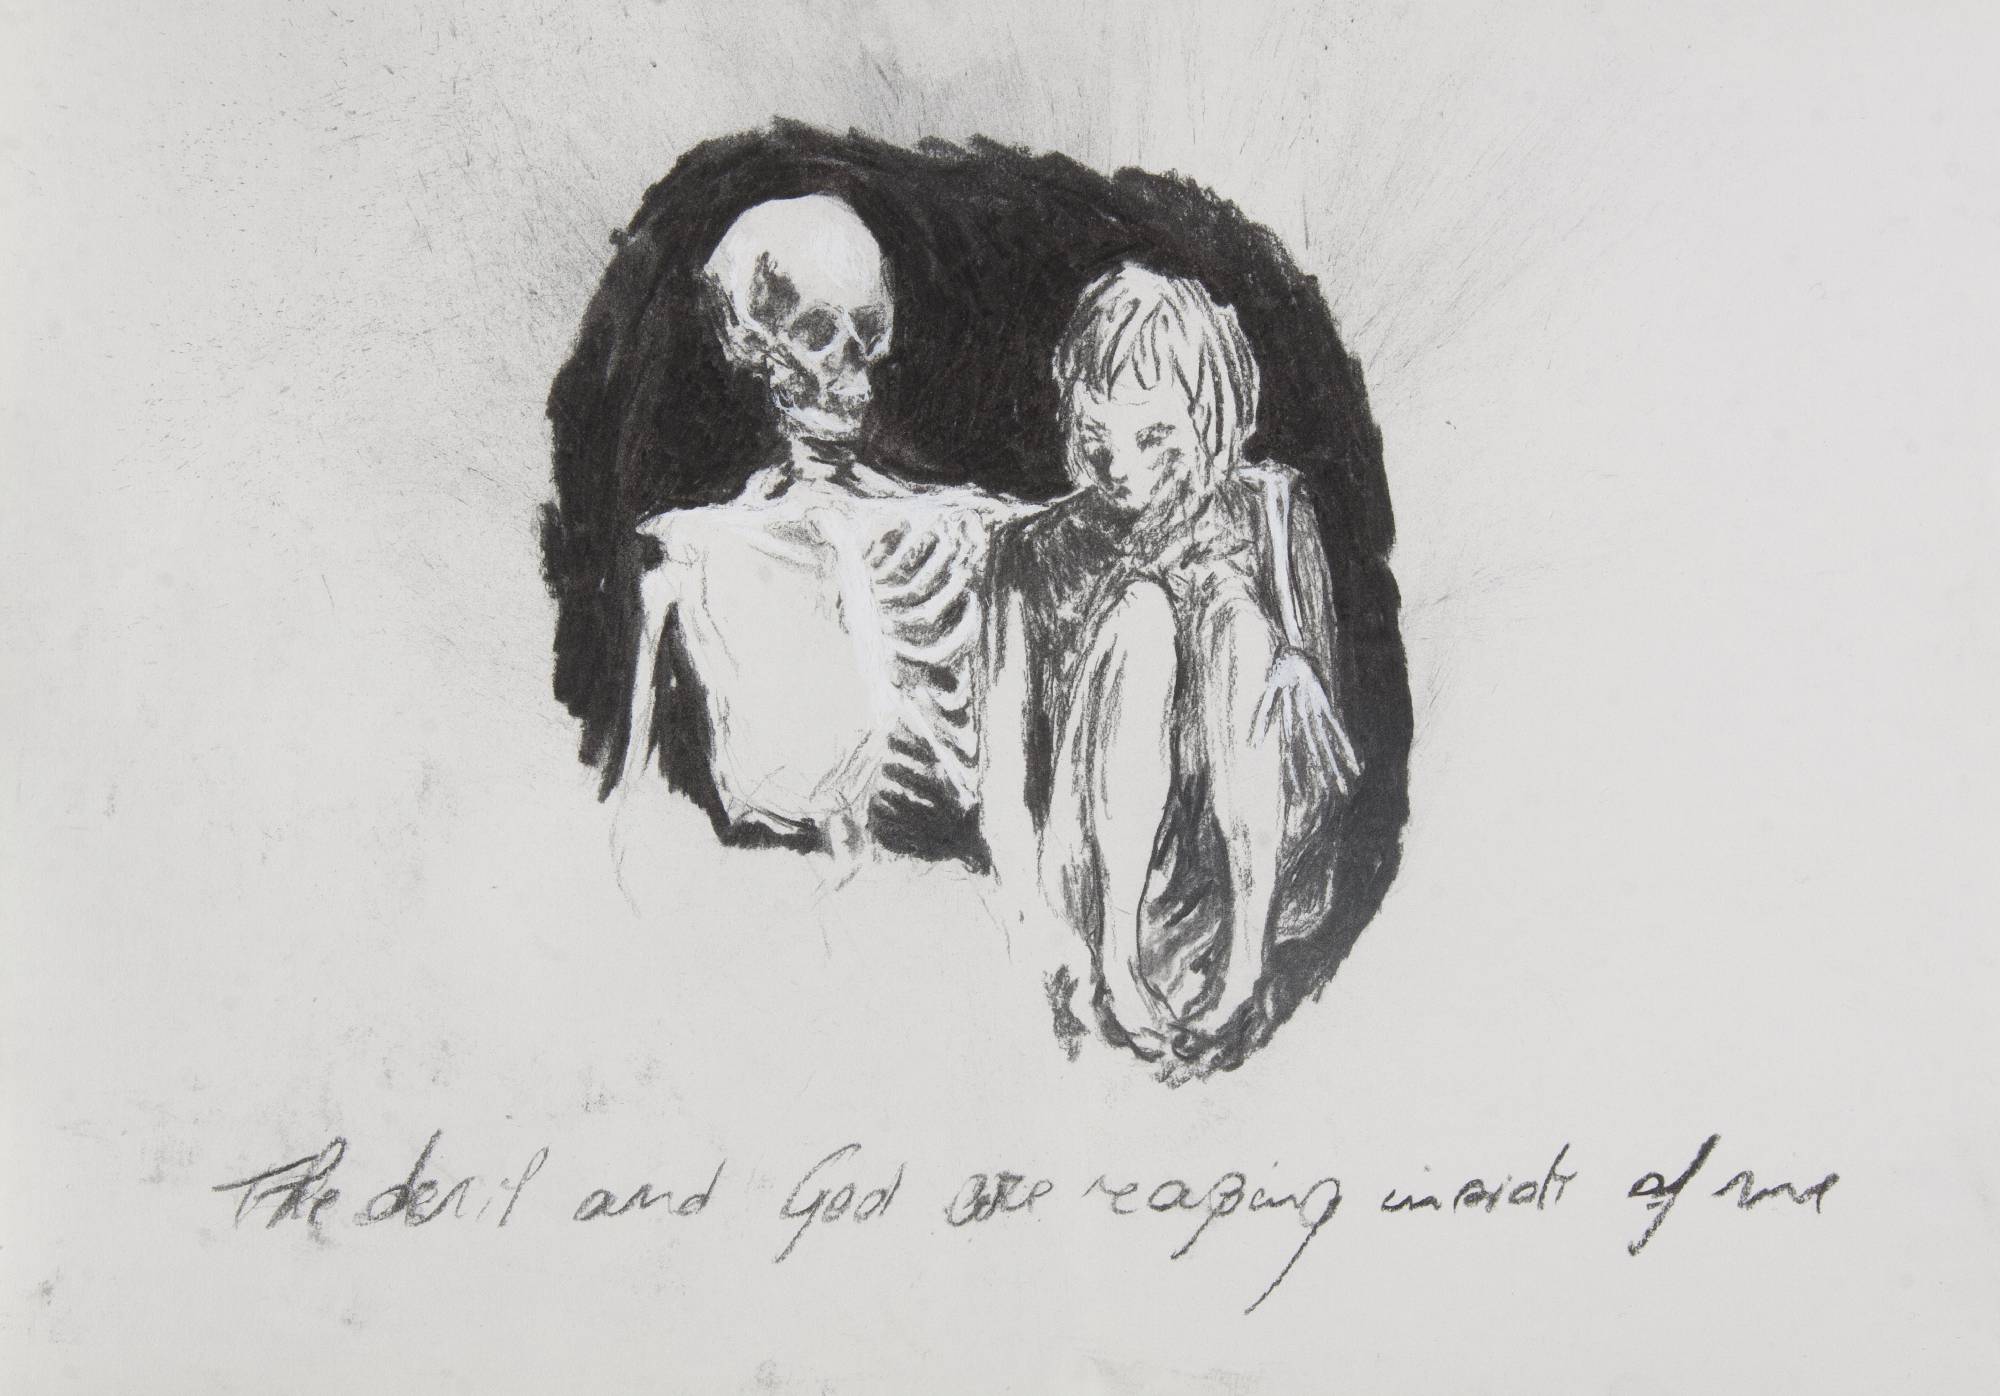 The devil and God are reaping inside of me